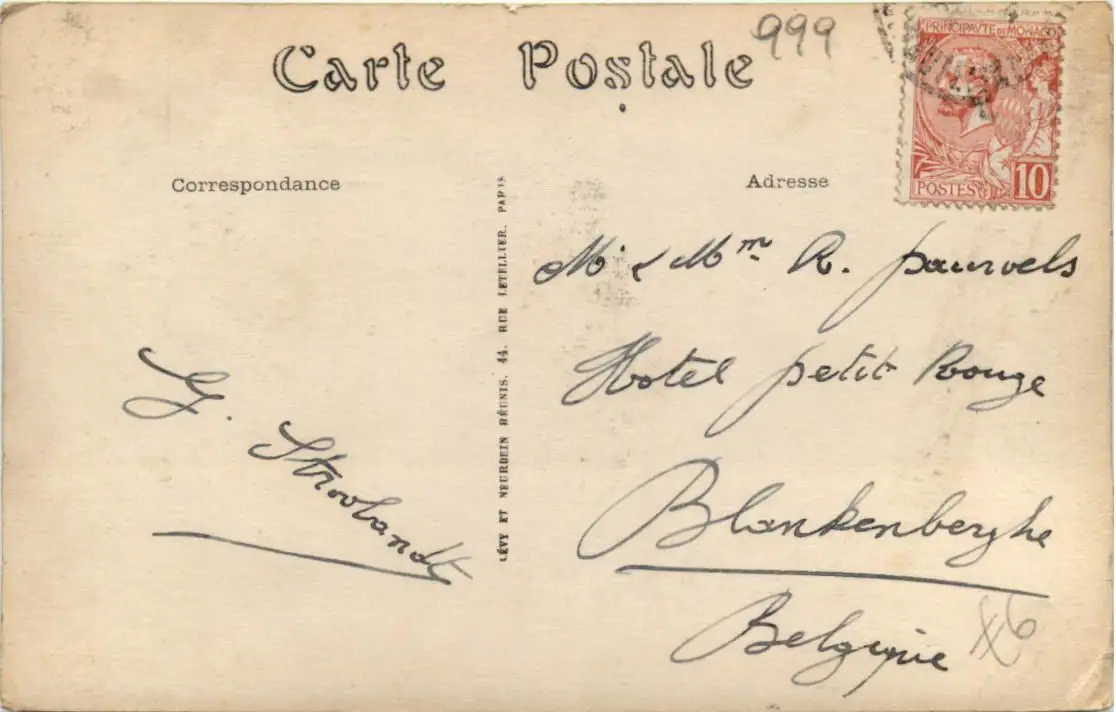 999
Carte Postale
PRINCIPAVTE DE MONACO
POSTES 10
Correspondance
Adresse
LÉVY ET NEURDEIN RÉUNIS, 44, RUE LETELLIER, PARIS
Mr & Mm R. pauwels
Hotel petit Rouge
Blankenberghe
Belgique
G. Stroobandt